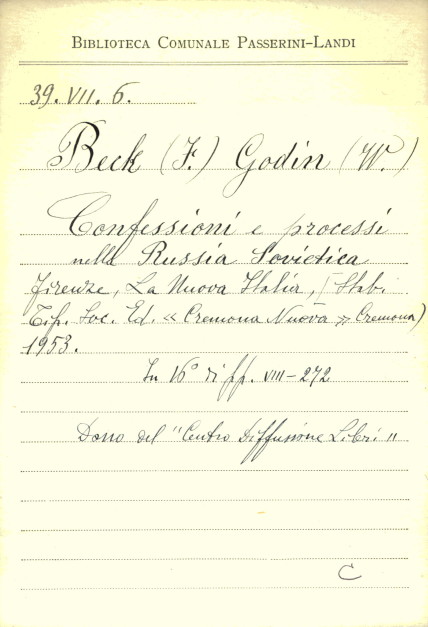 BIBLIOTECA COMUNALE PASSERINI-LANDI
39. VII. 6.
Beck (F.) Godin (W.)
Confessioni e processi
nella Russia Sovietica
Firenze, La Nuova Italia, (Stab.
Tip. Soc. Ed. « Cremona Nuova » Cremona)
1953.
In 16° di pp. VIII-272
Dono del "Centro Diffusione Libri"
C